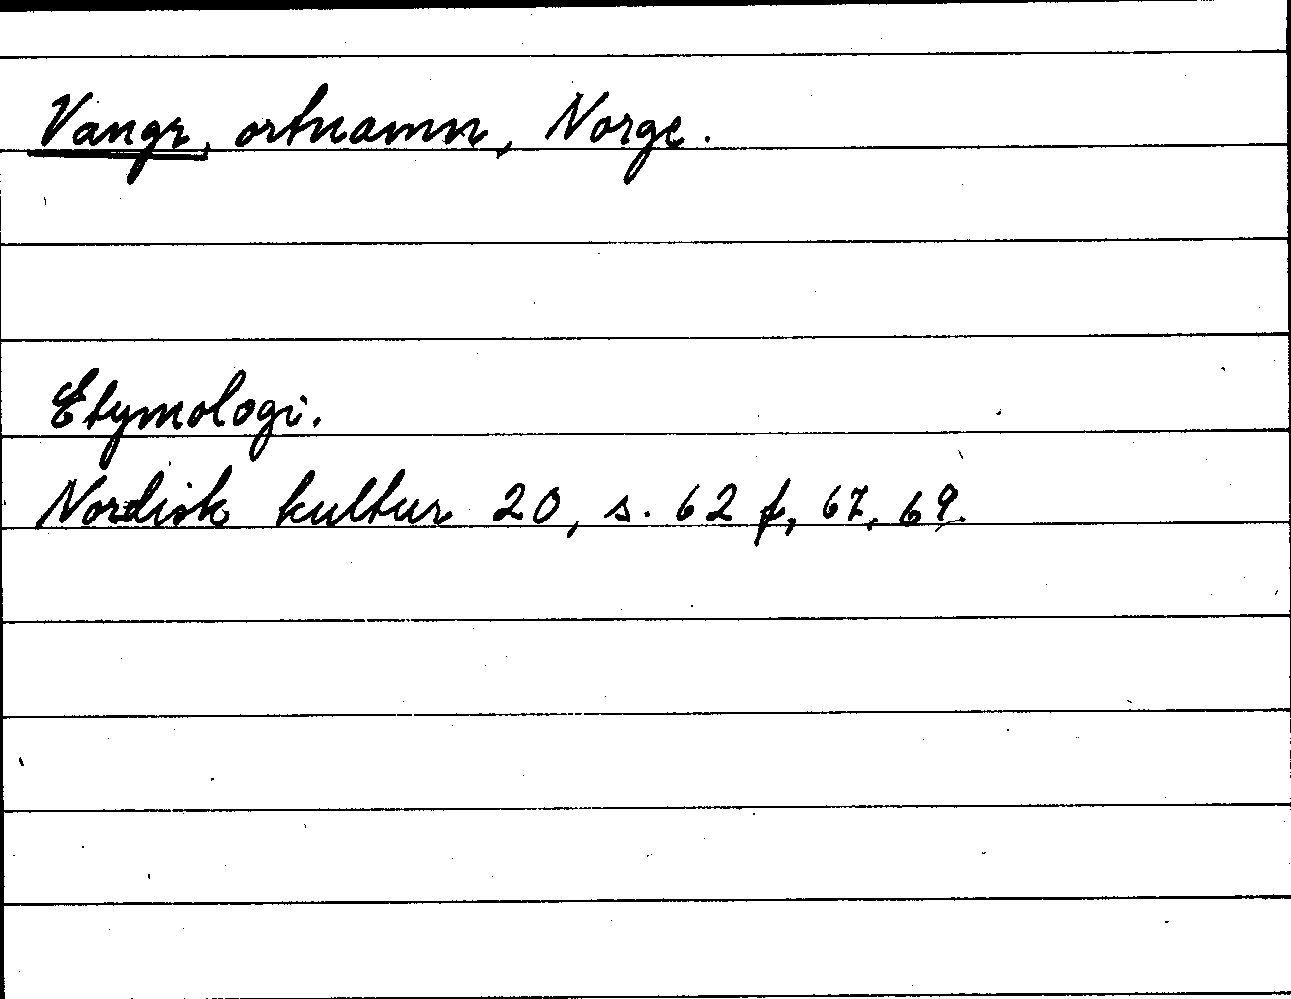 Vangr, ortnamn, Norge.
Etymologi.
Nordisk kultur 20, s. 62 f, 67, 69.